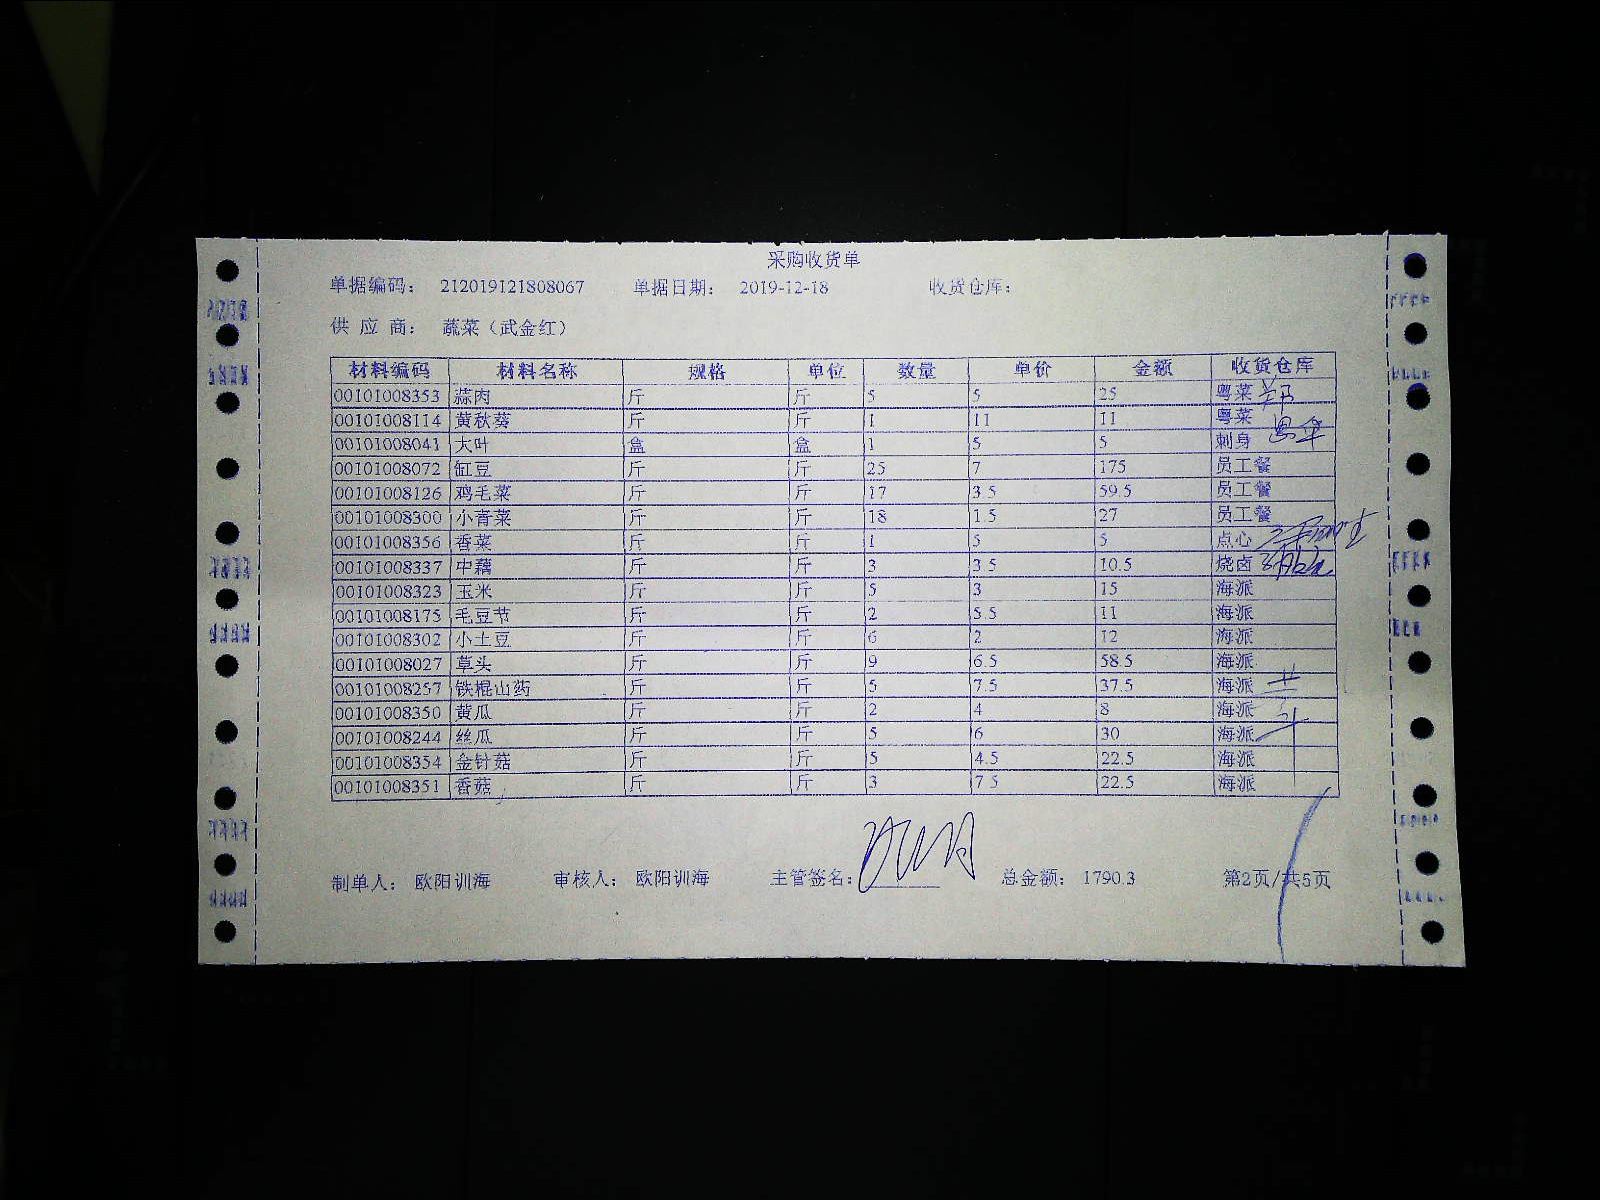 采购收货单
单据编码： 212019121808067 单据日期： 2019-12-18 收货仓库：
供 应 商： 蔬菜（武金红）
材料编码 材料名称 规格 单位 数量 单价 金额 收货仓库
00101008353 蒜肉 斤 斤 5 5 25 粤菜
00101008114 黄秋葵 斤 斤 1 11 11 粤菜
00101008041 大叶 盒 盒 1 5 5 刺身
00101008072 缸豆 斤 斤 25 7 175 员工餐
00101008126 鸡毛菜 斤 斤 17 3.5 59.5 员工餐
00101008300 小青菜 斤 斤 18 1.5 27 员工餐
00101008356 香菜 斤 斤 1 5 5 点心
00101008337 中藕 斤 斤 3 3.5 10.5 烧卤
00101008323 玉米 斤 斤 5 3 15 海派
00101008175 毛豆节 斤 斤 2 5.5 11 海派
00101008302 小土豆 斤 斤 6 2 12 海派
00101008027 草头 斤 斤 9 6.5 58.5 海派
00101008257 铁棍山药 斤 斤 5 7.5 37.5 海派
00101008350 黄瓜 斤 斤 2 4 8 海派
00101008244 丝瓜 斤 斤 5 6 30 海派
00101008354 金针菇 斤 斤 5 4.5 22.5 海派
00101008351 香菇 斤 斤 3 7.5 22.5 海派
制单人： 欧阳训海 审核人： 欧阳训海 主管签名： 总金额： 1790.3 第2页/共5页